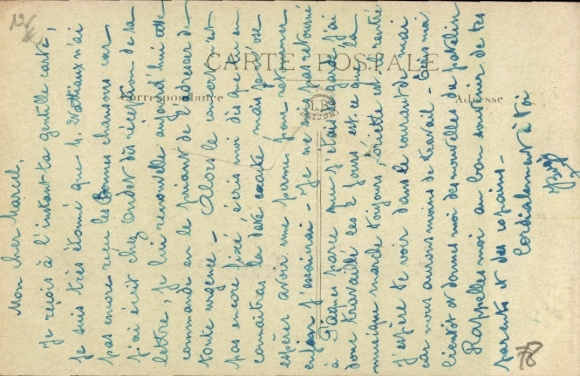 126
CARTE POSTALE
Correspondance
Adresse
Mon cher Marcel,
Je reçois à l'instant ta gentille carte,
je suis très étonné que M. Wattiaux n'ai
pas encore reçu les Bonnes chansons car
j'ai écrit chez Oudet dès réception de sa
lettre, je lui renouvelle aujourd'hui cette
commande en le priant de l'adresser de
toute urgence - Alors le concours n'est
pas encore fixé, écris moi dès que tu en
connaitras la date exacte mais je n'ose
espérer avoir une permi pour retourner
enfin j'essaierai - Je ne suis pas retourné
à Pâques parce que j'étais de garde j'ai
donc travaillé les 2 jours est-ce que la
musique marche toujours, Juliette est rentré
j'espère te voir dans le courant de mai
car nous aurons moins de travail - Écris moi
bientôt et donnes moi des nouvelles du patelin
Rappelles moi au bon souvenir de tes
parents et des copains -
Cordialement à toi
78